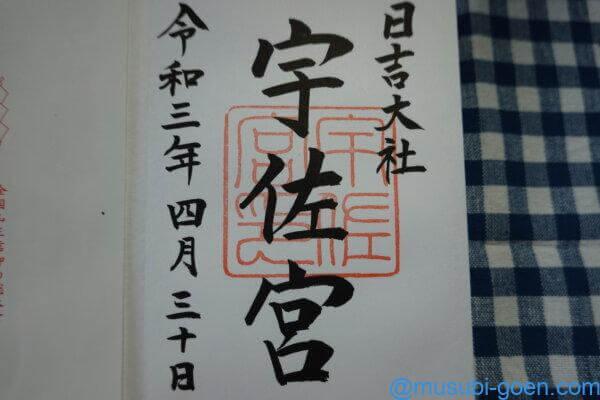 日吉大社
宇佐宮
令和三年四月三十日
@musubi-goen.com